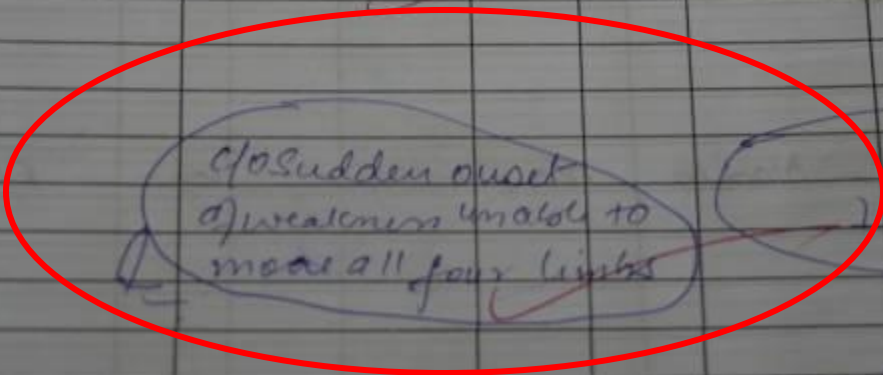 c/o Sudden onset
of weakness unable to
move all four limbs